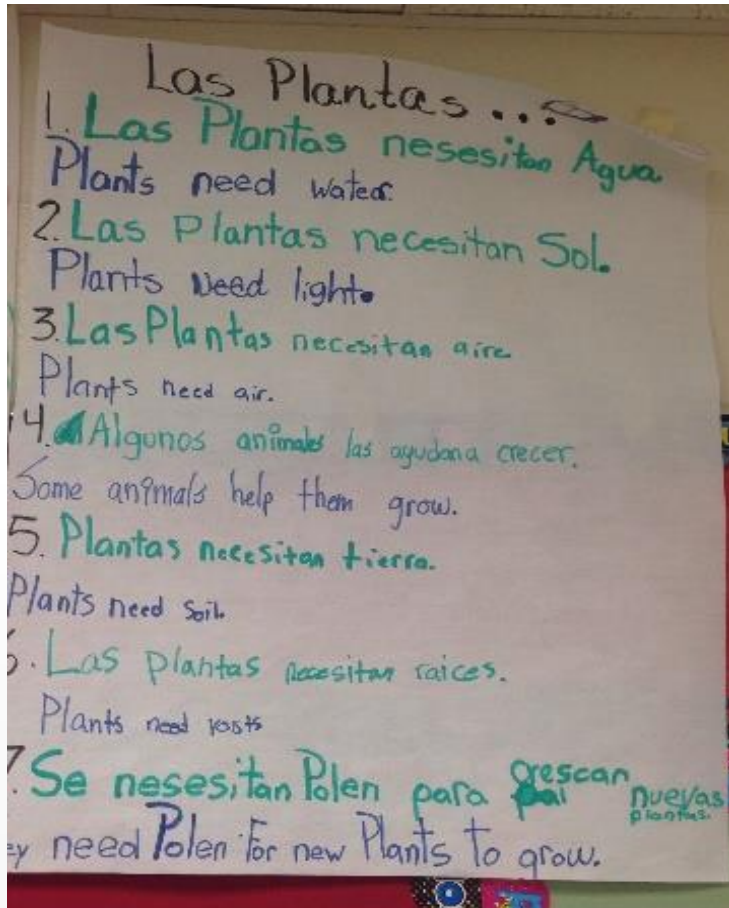 Las Plantas...
1. Las Plantas nesesitan Agua.
Plants need water.
2. Las Plantas necesitan Sol.
Plants Need light.
3. Las Plantas necesitan aire.
Plants need air.
4. Algunos animales las ayudan a crecer.
Some animals help them grow.
5. Plantas necesitan tierra.
Plants need soil.
6. Las plantas necesitan raices.
Plants need roots
7. Se nesesitan Polen para crescan nuevas plantas.
ey need Polen For new Plants to grow.